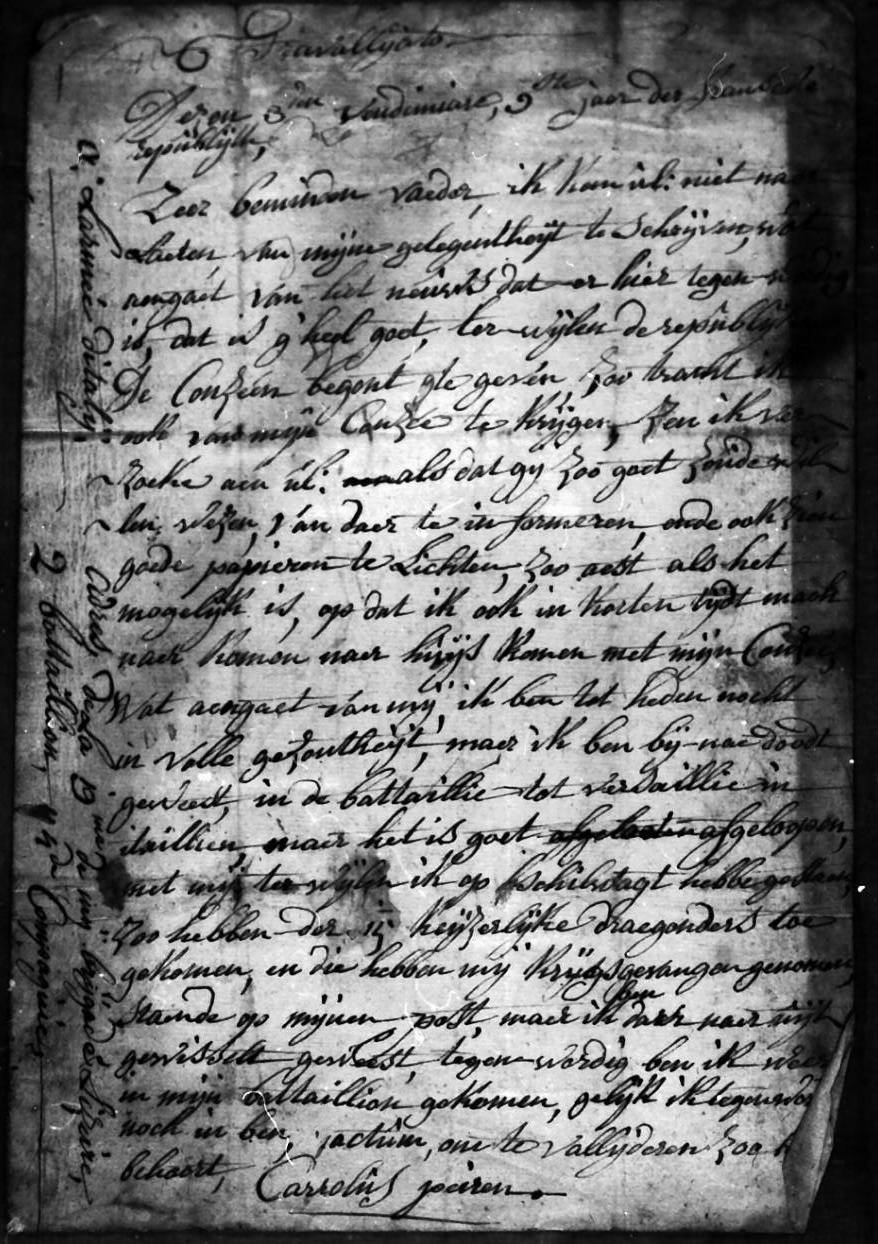 Travallyato
Dezen 3den Vendimiare, 9ste jaer der fransche
republijk,
Zeer beminden vaeder, ik kan ul: niet naer
Laeten van mijne gelegentheijt te schrijven, wat
aengaet van het nieuws dat er hier tegenwoordig
is, dat is g'heel goet, terwijlen de republijk
De Conzeen begont gte geven zoo tracht ik
ook van mijn Conzee te krijgen, Zen ik ver
zoeke aen ul: als dat gij zoo goet zoude wil
len wezen, van daer te informeren, ende ook
goede papieren te Lichten, zoo aest als het
mogelijk is, op dat ik ook in korten tijdt mach
naer komen naer huijs komen met mijn Conzee,
Wat aengaet van mij, ik ben tot heden noch
in volle gezontheijt, maer ik ben bij-nae doodt
geweest, in de battaillie tot versaillie in
itaillien maer het is goet afgeloopen,
met mij terwijlen ik op schilstagt hebbe gestaen,
zoo hebben der 15 keijzerlijke draegonders toe
gekomen, en die hebben mij krijgsgevangen genomen,
staende op mijnen post, maer ik ben daer naer uijt
gewisselt geweest, tegenwordig ben ik weer
in mijn battaillion gekomen, gelijk ik tegenwor
noch in ben, jactum, om te vallijderen zoo
behoort,
Carrolus peiren
a Larmée ditaly Adres dela 13 me de mij brijgade
2 battaillion, 4 de Compagnies